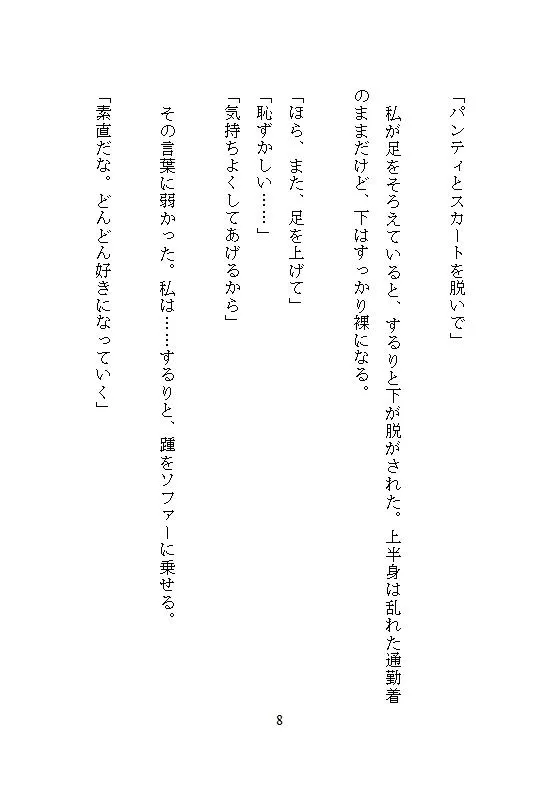 「パンティとスカートを脱いで」
私が足をそろえていると、するりと下が脱がされた。上半身は乱れた通勤着
のままだけど、下はすっかり裸になる。
「ほら、また、足を上げて」
「恥ずかしい……」
「気持ちよくしてあげるから」
その言葉に弱かった。私は……するりと、踵をソファーに乗せる。
「素直だな。どんどん好きになっていく」
8